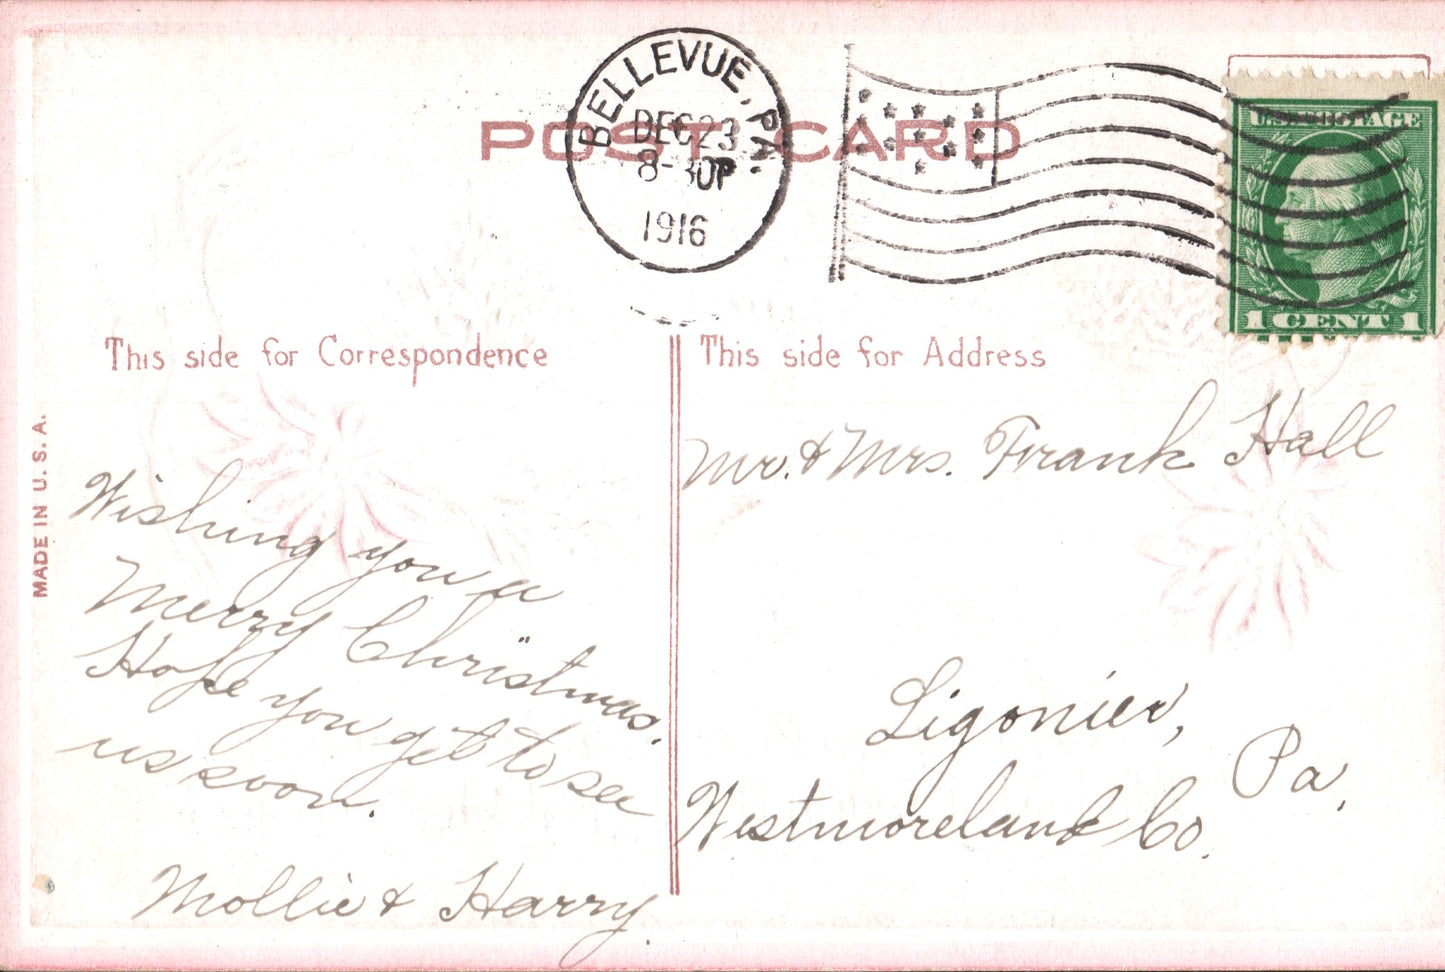 BELLEVUE, PA.
DEC 23
8-30P
1916
POST CARD
U.S. POSTAGE
1 CENT 1
This side for Correspondence
This side for Address
MADE IN U.S.A.
Wishing you a
Merry Christmas.
Hope you get to see
us soon.
Mollie & Harry
Mr. & Mrs. Frank Hall
Ligonier,
Pa,
Westmoreland Co.